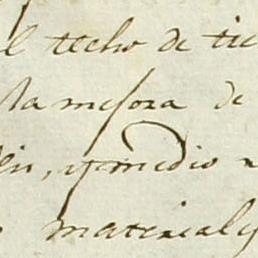 el techo de tie
la mesora de
en, y medio
materialy